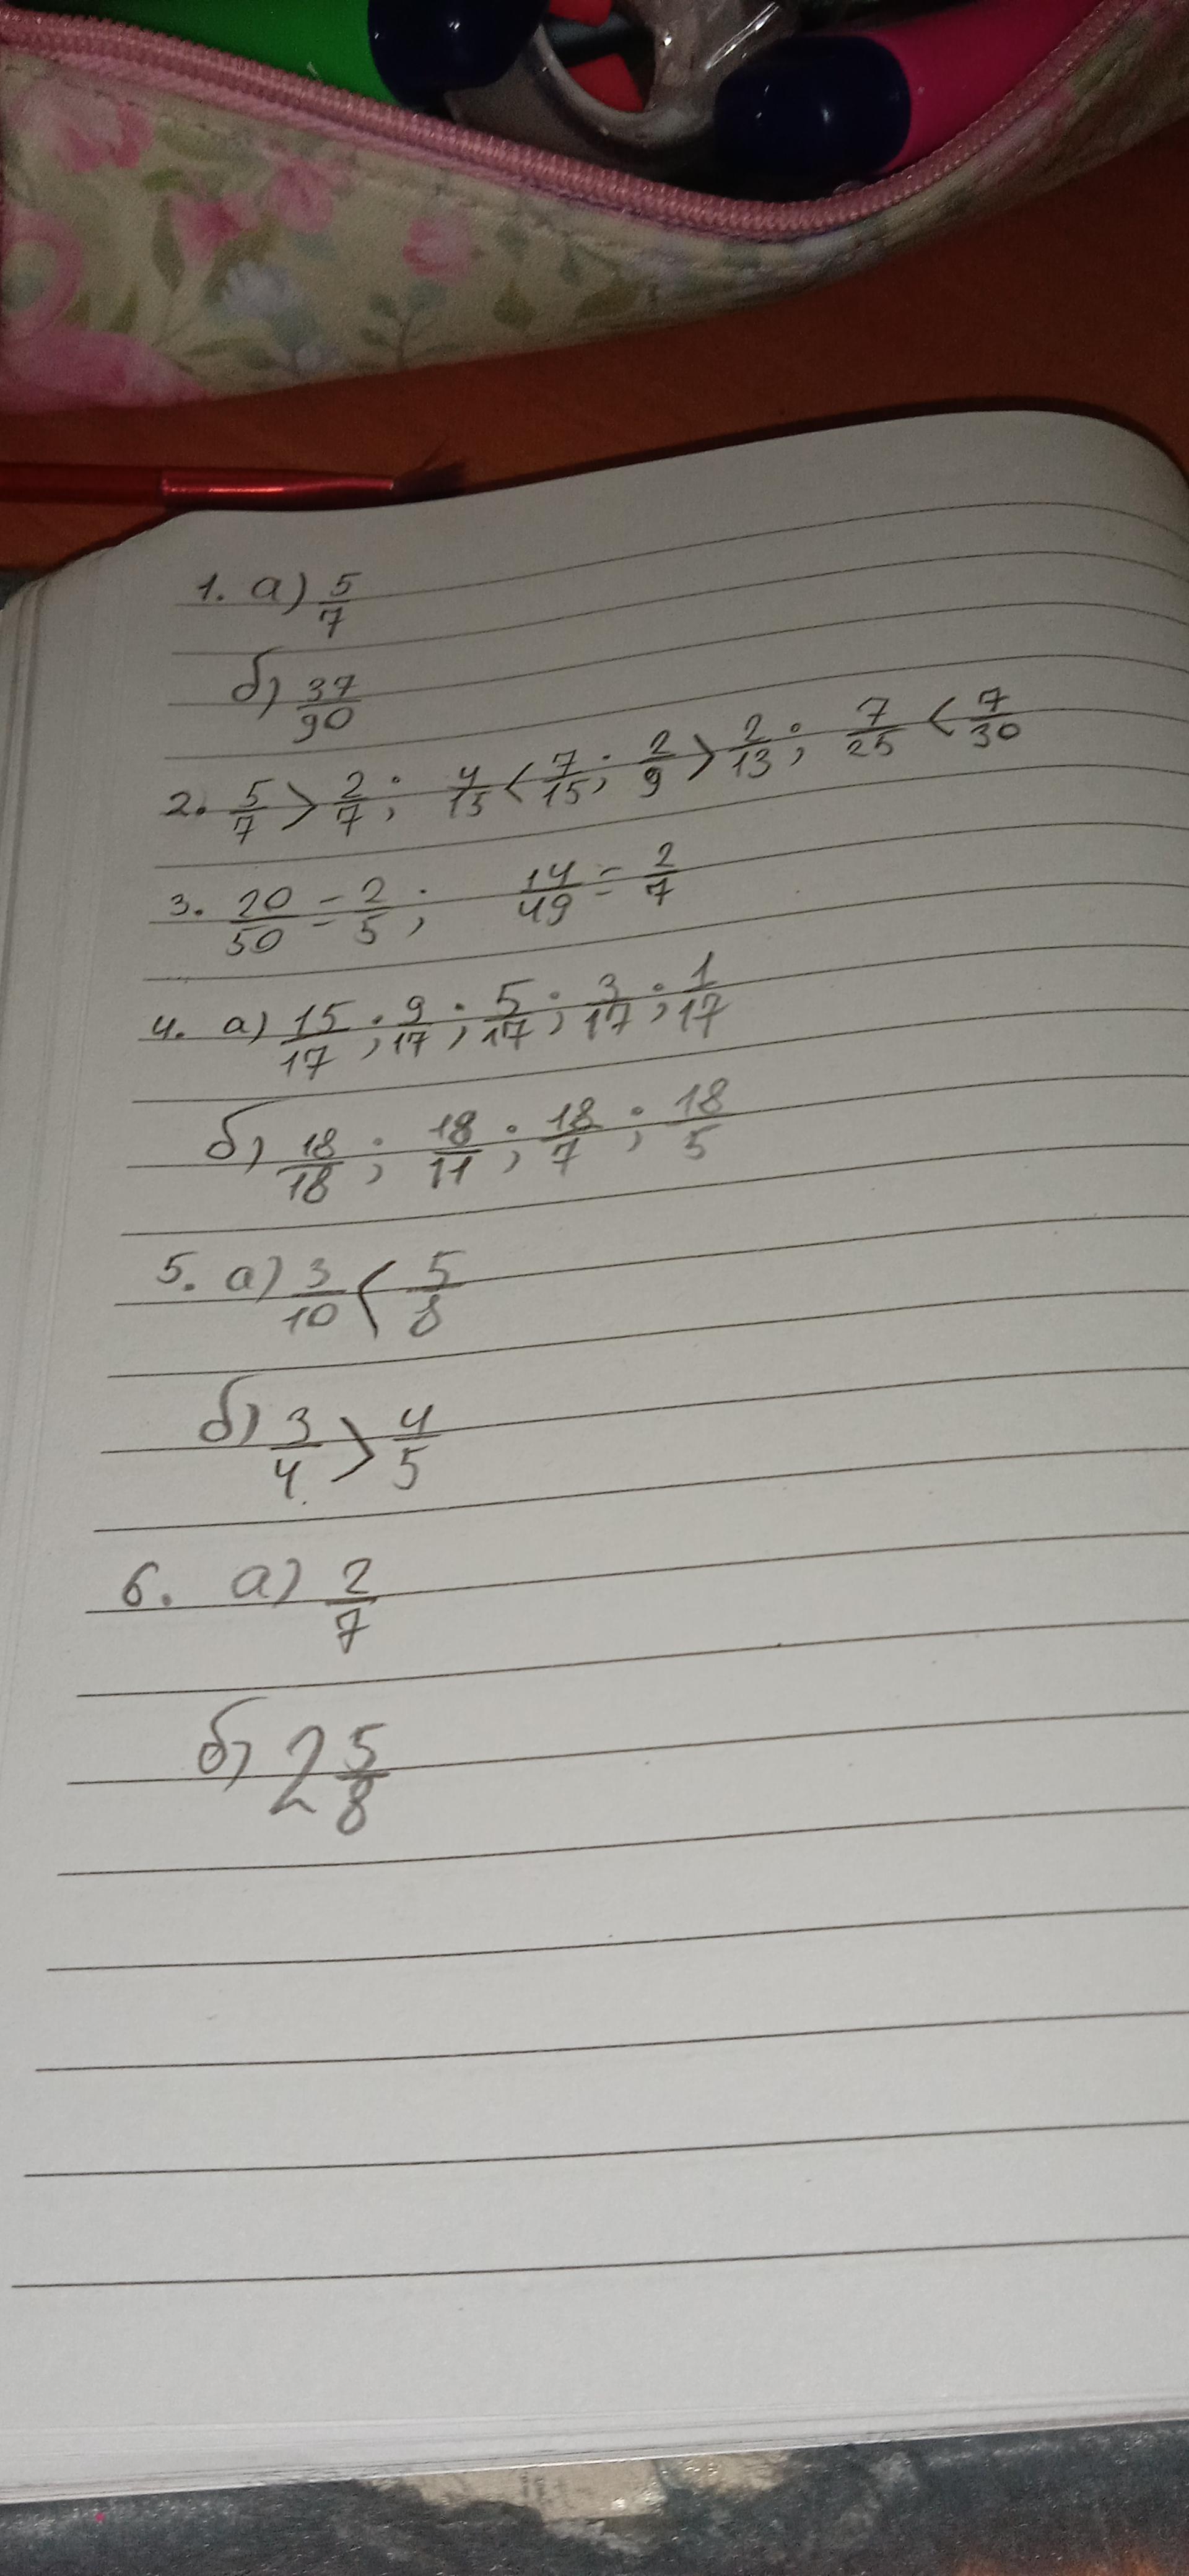 1. а) 5/7
б) 37/90
2. 5/7 > 2/7; 4/15 < 7/15; 2/9 > 2/13; 7/25 < 7/30
3. 20/50 = 2/5; 14/49 = 2/7
4. а) 15/17; 9/17; 5/17; 3/17; 1/17
б) 18/18; 18/11; 18/7; 18/5
5. а) 3/10 < 5/8
б) 3/4 > 4/5
6. а) 2/7
б) 2 5/8